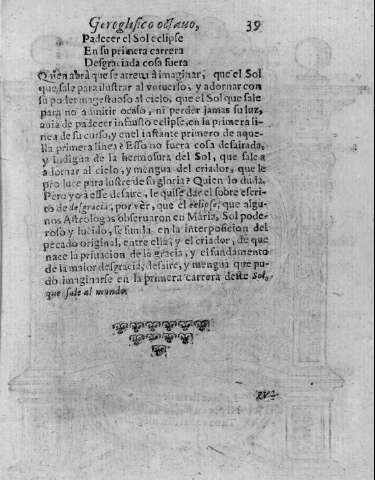 Geroglifico octavo, 39
Padecer el Sol eclipse
En su primera carrera
Desgraciada cosa fuera
Quien abrà que se atreua à imaginar, que el Sol
que sale para ilustrar al vniuerso, y adornar con
su poder magestuoso al cielo, que el Sol que sale
para no admitir ocaso, ni perder jamas su luz,
auia de padecer infausto eclipse, en la primera li-
nea de su curso, y en el instante primero de aque-
lla primera linea? Esso no fuera cosa desairada,
y indigna de la hermosura del Sol, que sale a
adornar al cielo, y mengua del criador, que le
produce para lustre de su gloria? Quien lo duda.
Pero yo à esse desaire, le quise dar el sobre escri-
to de desgracia, por vèr, que el eclipse, que algu-
nos Astrologos obseruaron en Maria, Sol pode-
roso y lucido, se funda en la interposicion del
pecado original, entre ella, y el criador, de que
nace la priuacion de la gracia, y el fundamento
de la maior desgracia, desaire, y mengua que pu-
do imaginarse en la primera carrera deste Sol,
que sale al mundo.